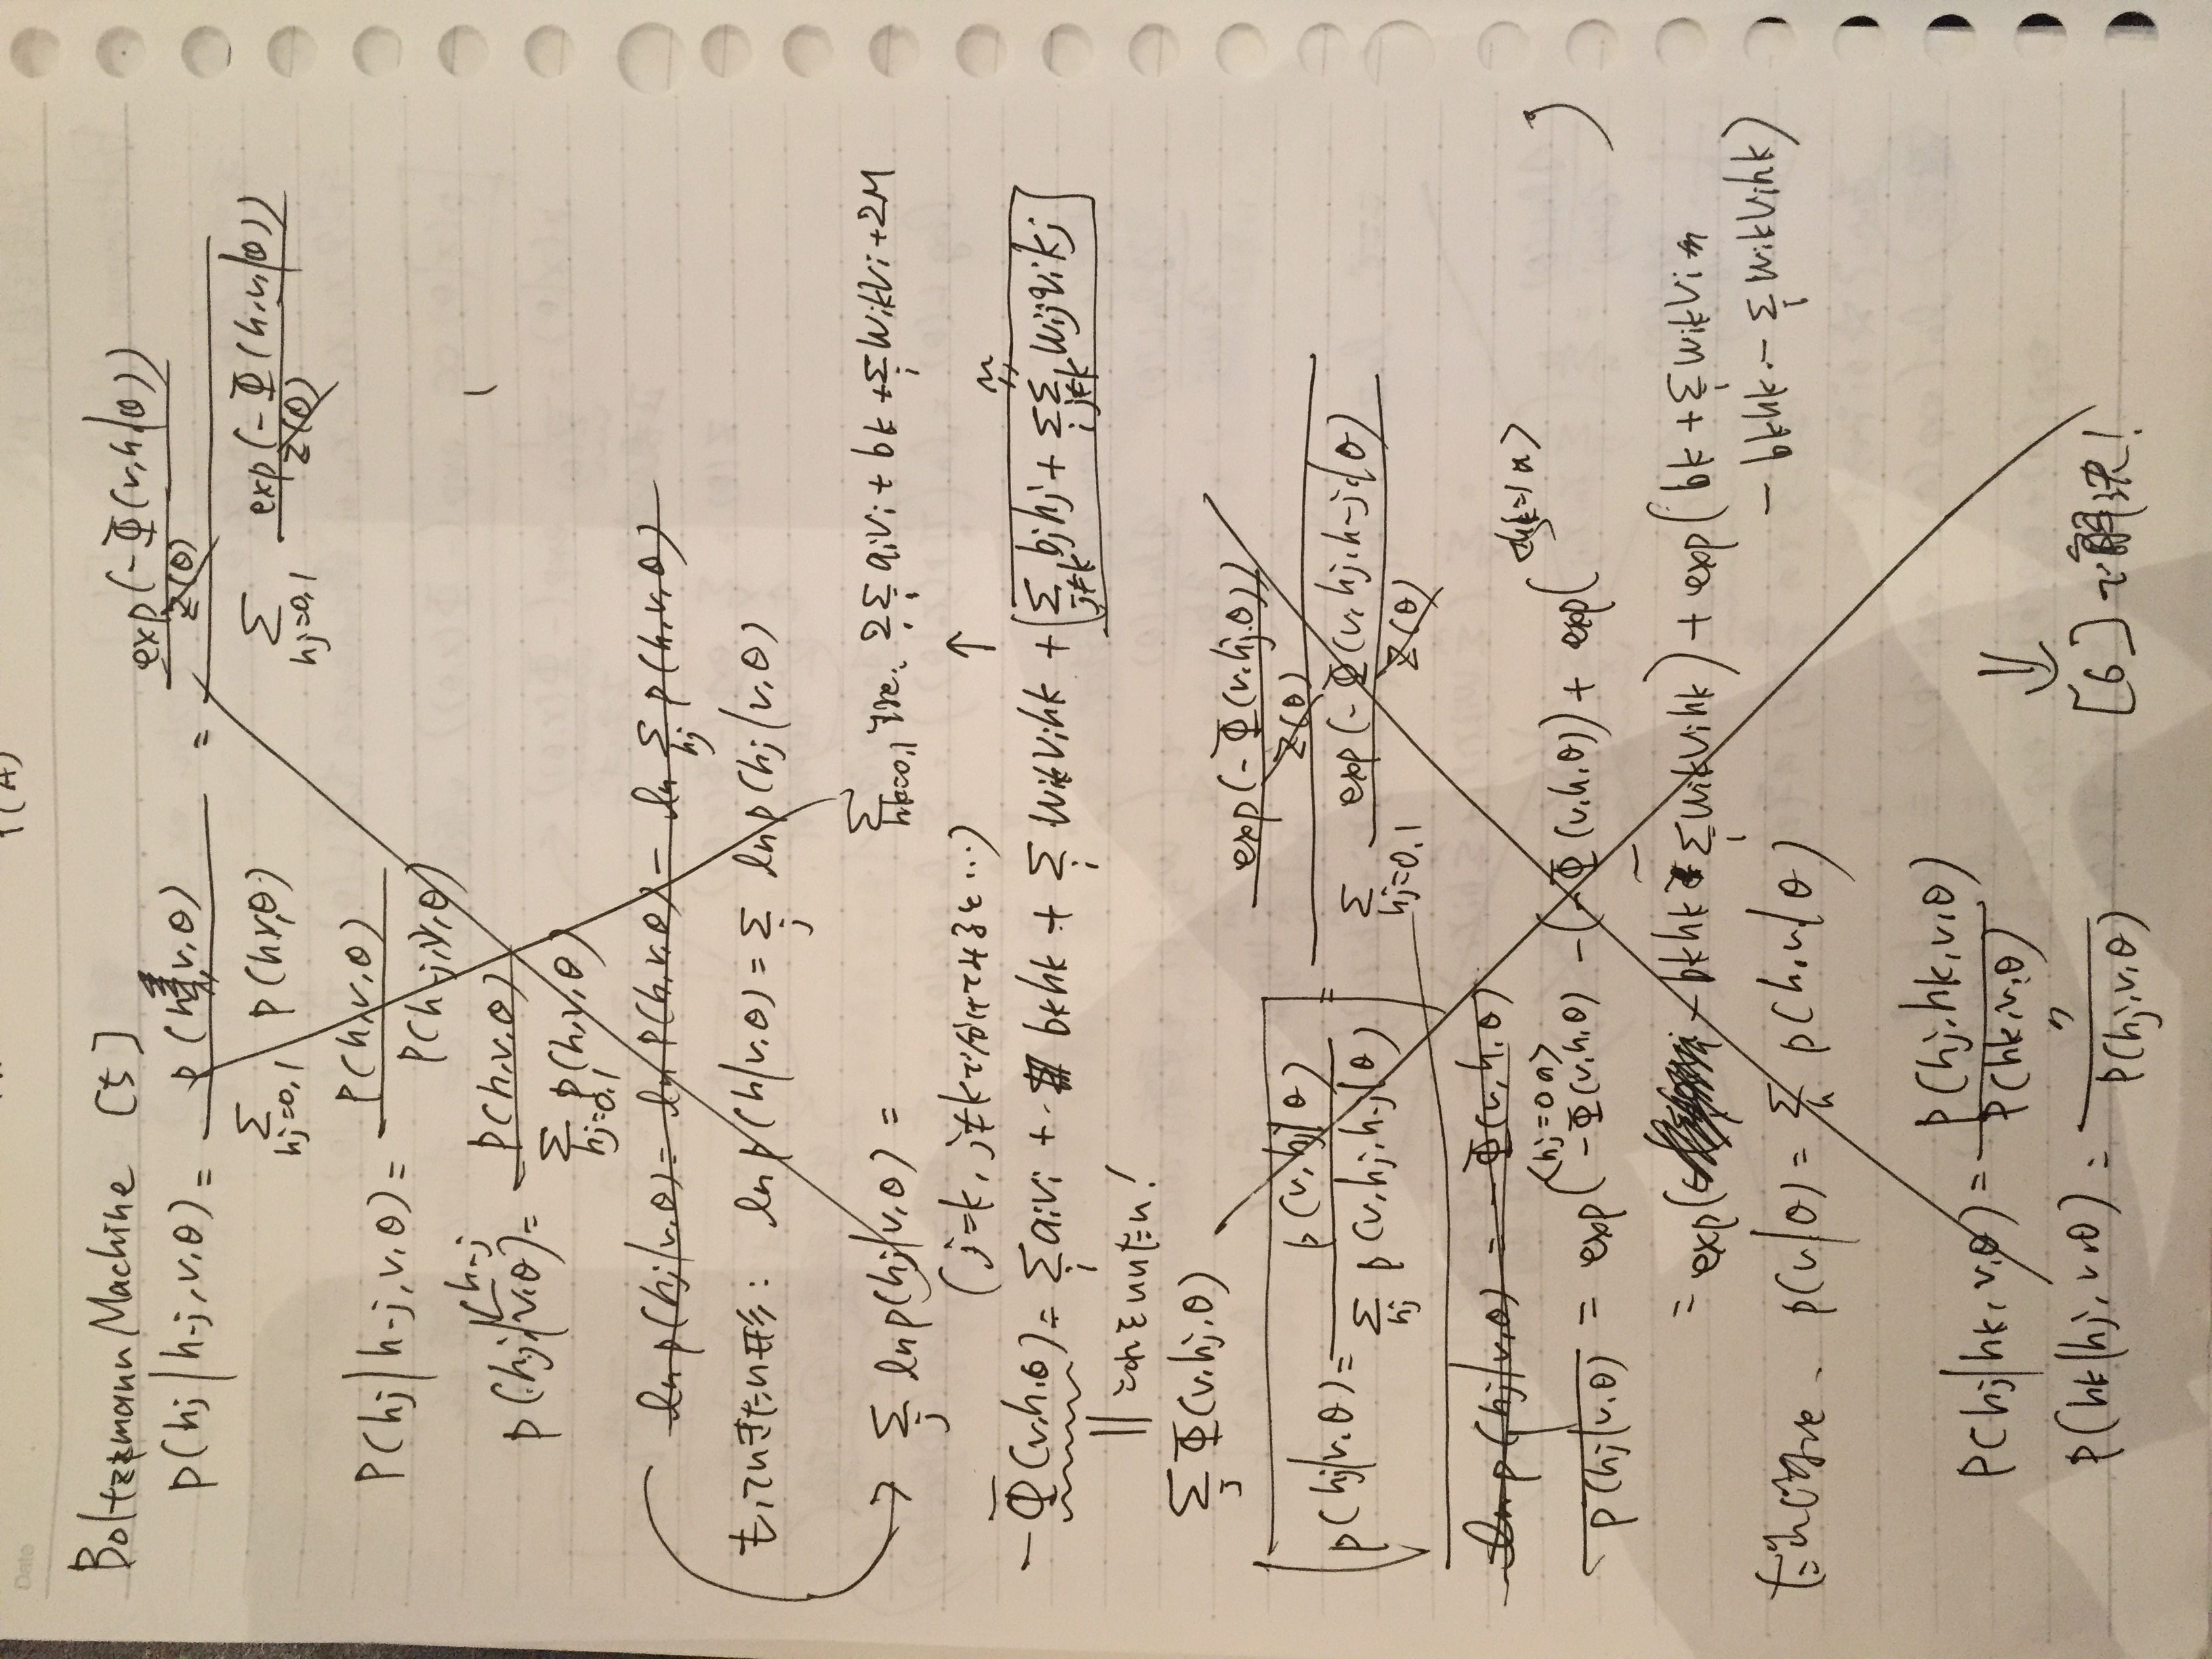 Date
P(A)
Boltzmann Machine [5]
p(hj|h-j,v,θ) = p(h,v,θ) / Σ_{hj=0,1} p(h,v,θ) = (exp(-Φ(v,h|θ)) / Z(θ)) / (Σ_{hj=0,1} exp(-Φ(h,v|θ)) / Z(θ))
P(hj|h-j,v,θ) = P(h,v,θ) / P(h-j,v,θ)
h-j
p(hj|v,θ) = P(h,v,θ) / Σ_{hj=0,1} p(h,v,θ)
ln p(hj|v,θ) = ln P(h,v,θ) - ln Σ_{hj} p(h,v,θ)
もっていきたい形: ln p(h|v,θ) = Σ_j ln p(hj|v,θ)
→ Σ_j ln p(hj|v,θ) =
Σ_{hk=0,1} すれば、 2Σ_i aivi + bk + Σ_i wikvi + 2M
(j=k, j≠kで分けてみると…) ↑
M
-Φ(v,h,θ) = Σ_i aivi + bkhk + Σ_i wikvihk + [Σ_{j≠k} bjhj + Σ_i Σ_{j≠k} wijvihj]
|| これをいいたい!
Σ_j Φ(v,hj,θ)
p(hj|v,θ) = p(v,hj|θ) / Σ_{hj} p(v,hj,h-j|θ) = (exp(-Φ(v,hj,θ)) / Z(θ)) / (Σ_{hj=0,1} exp(-Φ(v,hj,h-j|θ) / Z(θ))
ln p(hj|v,θ) = -Φ(v,h,θ)
<hj=0の> <hk=1の>
1/p(hj|v,θ) = exp(-Φ(v,h,θ) - (-Φ(v,h,θ)) + exp( )
= exp( - bkhk - Σ_i wikvihk) + exp(bk + Σ_i wikvi
- bkhk - Σ_i wikvihk)
p(v|θ) = Σ_h p(h,v|θ)
P(hj|hk,v,θ) = P(hj,hk,v,θ) / P(hk,v,θ)
P(hk|hj,v,θ) = 〃 / P(hj,v,θ)
⇓
[6]で解決!